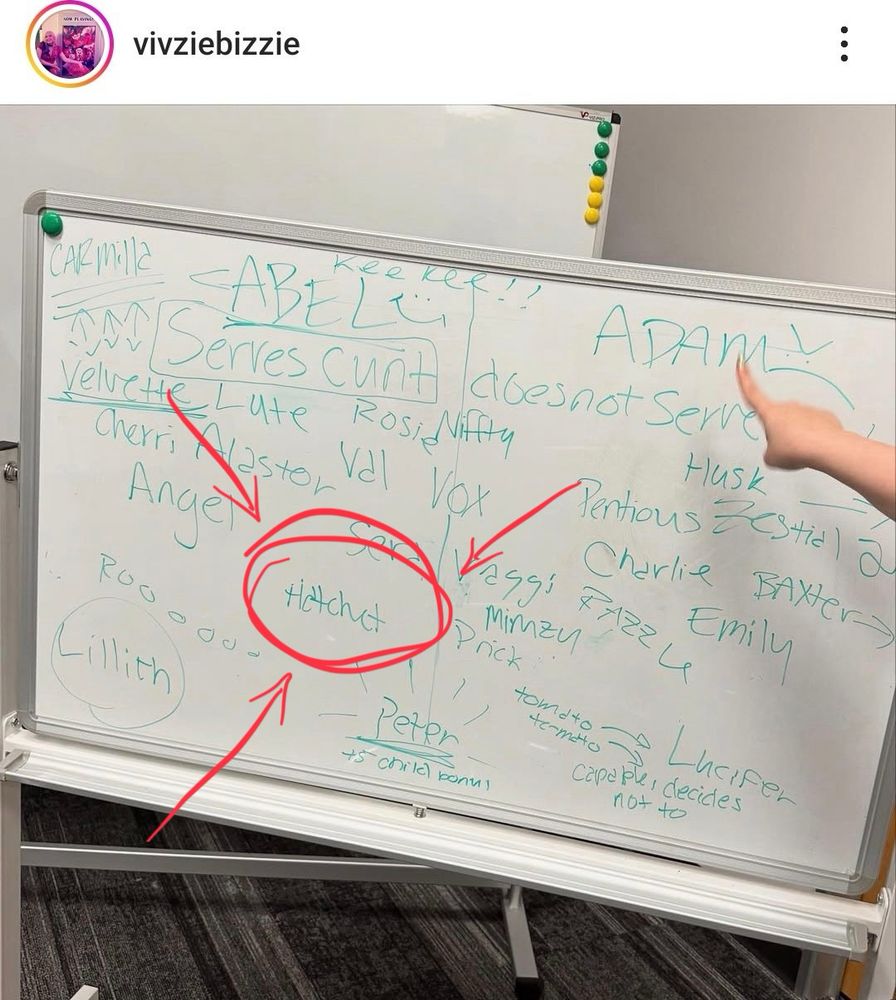 vivziebizzie
CARmilla
<ABEL
Kee Kee!!
ADAM
Serves Cunt
does not Serve
Velvette
Lute
Rosie
Niffty
Cherri
Alastor
Val
Vox
Husk
Angel
Pentious
Zestial
Sera
Vaggi
Charlie
BAXter
Hatchet
Mimzy
RAZZ
Emily
Prick
Lillith
Peter
+5 child bonus
tomato
tomato
Lucifer
capable, decides
not to